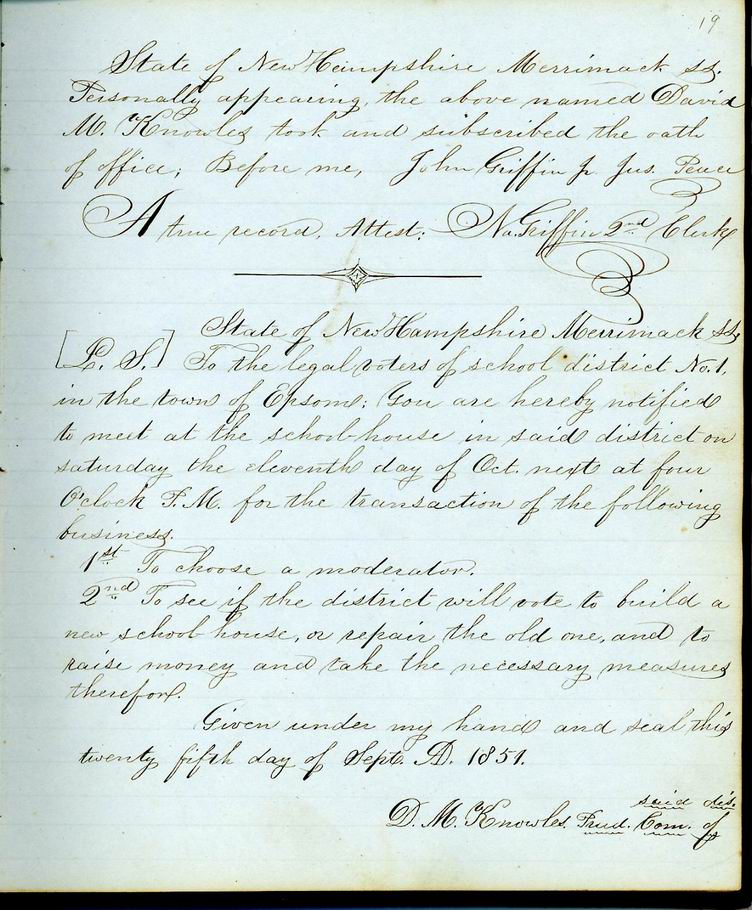 19
State of New Hampshire Merrimack ss.
Personally appearing, the above named David
M. Knowles took and subscribed the oath
of office; Before me, John Griffin Jr. Jus. Peace
A true record, Attest: Na. Griffin 2nd Clerk
State of New Hampshire Merrimack ss,
[L. S.] To the legal voters of school district No. 1,
in the town of Epsom; You are hereby notified
to meet at the school-house in said district on
saturday the eleventh day of Oct. next at four
O'clock P.M. for the transaction of the following
business.
1st To choose a moderator.
2nd To see if the district will vote to build a
new school house, or repair the old one, and to
raise money and take the necessary measures
therefor.
Given under my hand and seal this
twenty fifth day of Sept. A.D. 1851.
said dis.
D. M. Knowles. Prud. Com. of